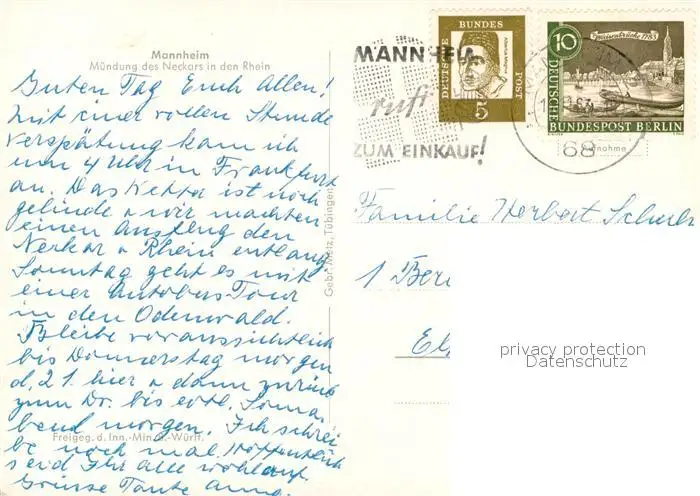 Mannheim
Mündung des Neckars in den Rhein
Guten Tag Euch Allen!
Mit einer vollen Stunde
Verspätung kam ich
um 4 Uhr in Frankfurt
an. Das Wetter ist noch
gelinde u wir machten
einen Ausflug den
Neckar u Rhein entlang.
Sonntag geht es mit
einer Autobus-Tour
in den Odenwald.
Bleibe voraussichtlich
bis Donnerstag morgen
d. 21. hier u dann zurück
zum Dr. bis evtl. Sonna-
bend morgen. Ich schrei-
be noch mal. Hoffentlich
seid Ihr alle wohlauf.
Grüsse Tante Anna.
Freigeg. d. Inn.-Min. Württ.
Gebr. Metz, Tübingen
MANNHEIM
ruft
ZUM EINKAUF!
DEUTSCHE BUNDES POST
Albertus Magnus
5
10
Waisenbrücke 1783
DEUTSCHE
BUNDESPOST BERLIN
68
Familie Herbert
1 Ber
privacy protection
Datenschutz